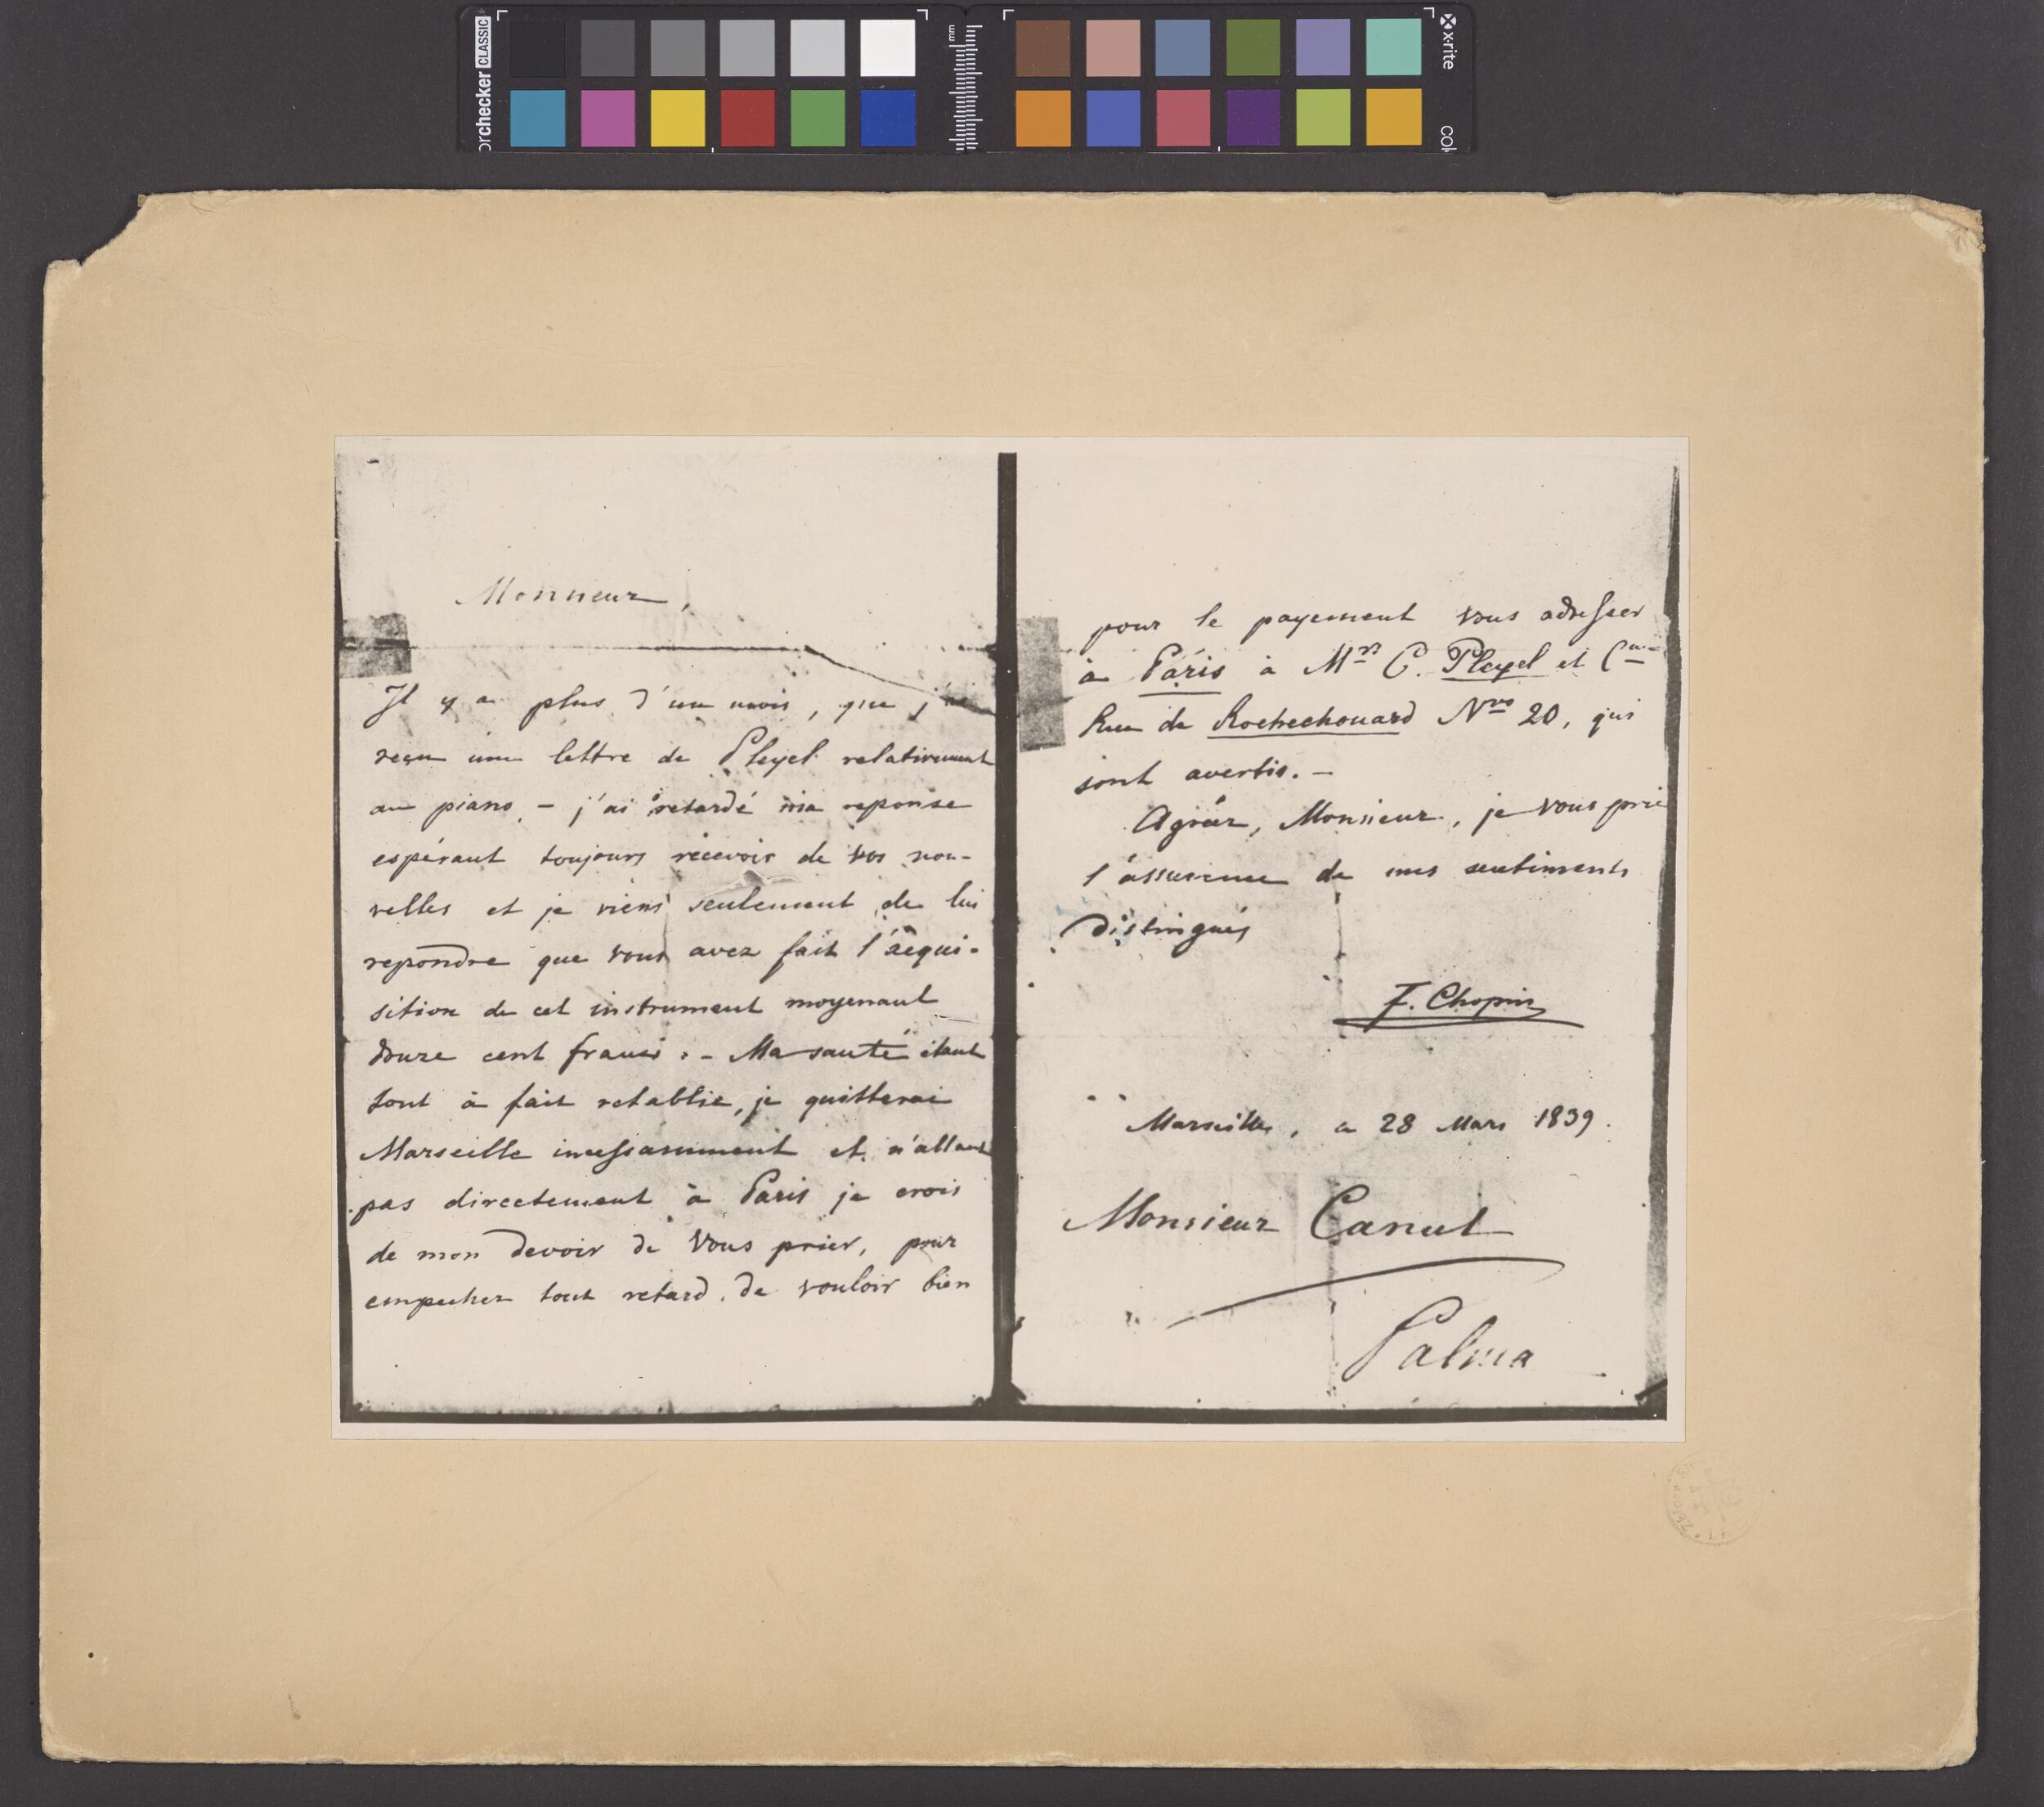 orchecker CLASSIC
mm
x-rite
Monsieur,
Il y a plus d'un mois, que j'ai
reçu une lettre de Pleyel relativement
au piano, – j'ai retardé ma reponse
espérant toujours recevoir de vos nou-
velles et je viens seulement de lui
repondre que vous avez fait l'acqui-
sition de cet instrument moyenant
douze cent francs. – Ma santé étant
tout à fait retablie, je quitterai
Marseille incessamment et n'allant
pas directement à Paris je crois
de mon devoir de vous prier, pour
empecher tout retard, de vouloir bien
pour le payement vous adresser
à Paris à Mrs C. Pleyel et Cnie
Rue de Rochechouard Nro 20, qui
sont avertis. –
Agréer, Monsieur, je vous prie
l'assurance de mes sentiments
distingués
F. Chopin
Marseille, a 28 Mars 1839.
Monsieur Canut
Palma